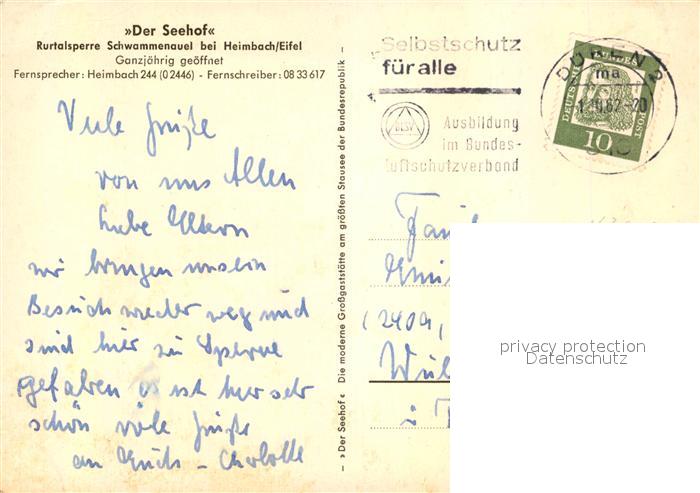 »Der Seehof«
Rurtalsperre Schwammenauel bei Heimbach/Eifel
Ganzjährig geöffnet
Fernsprecher: Heimbach 244 (0 2446) - Fernschreiber: 08 33 617
Viele Grüße
von uns Allen
Liebe Eltern
wir bringen unsern
Besuch wieder weg und
sind hier zu Sperre
gefahren es ist hier sehr
schön viele Grüße
an Euch - Charlotte
– »Der Seehof« Die moderne Großgaststätte am größten Stausee der Bundesrepublik –
Selbstschutz
für alle
BLSV
Ausbildung
im Bundes-
luftschutzverband
DÜREN
ma
62-20
DEUTSCHE BUNDESPOST
10
(2409)
privacy protection
Datenschutz